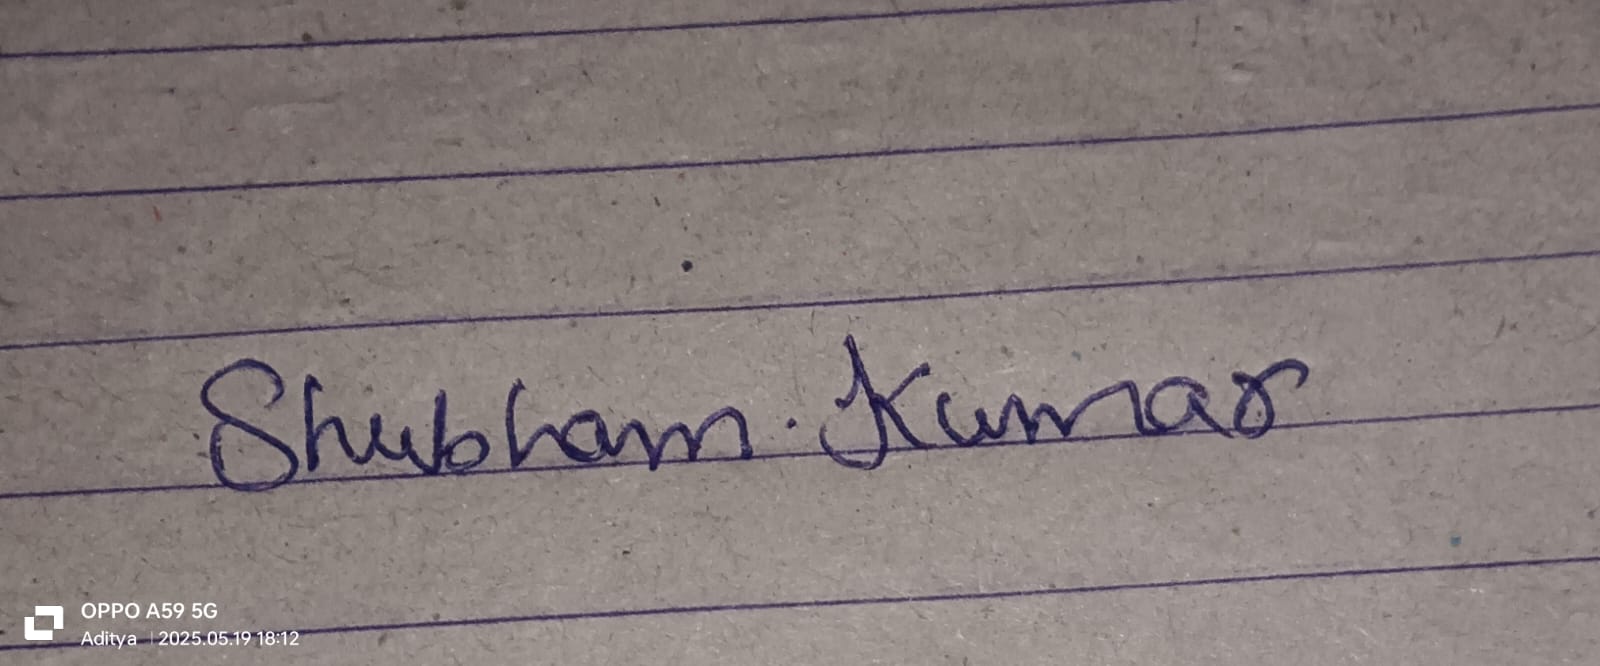 Shubham. Kumar
OPPO A59 5G
Aditya | 2025.05.19 18:12